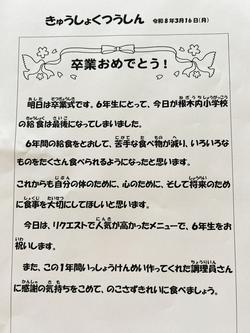 きゅうしょくつうしん
令和８年３月１６日（月）
卒業おめでとう！
明日は卒業式です。６年生にとって、今日が根木内小学校
の給食は最後になってしまいました。
６年間の給食をとおして、苦手な食べ物が減り、いろいろな
ものをたくさん食べられるようになったと思います。
これからも自分の体のために、心のために、そして将来のため
に食事を大切にしてほしいと思います。
今日は、リクエストで人気が高かったメニューで、６年生をお
祝いします。
また、この１年間いっしょうけんめい作ってくれた調理員さん
に感謝の気持ちをこめて、のこさずきれいに食べましょう。